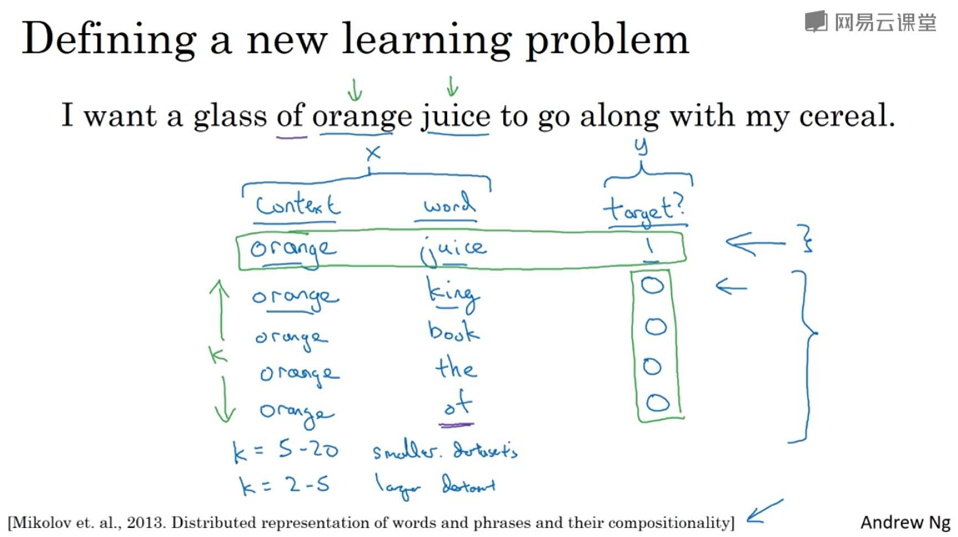 网易云课堂
Defining a new learning problem
I want a glass of orange juice to go along with my cereal.
x y
context word target?
orange juice 1
orange king 0
orange book 0
k
orange the 0
orange of 0
k = 5-20 smaller datasets
k = 2-5 larger dataset
[Mikolov et. al., 2013. Distributed representation of words and phrases and their compositionality]
Andrew Ng